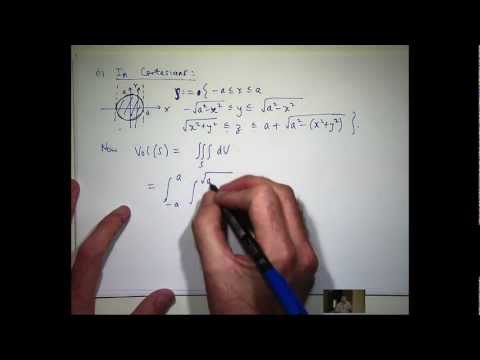 In Cartesians:
a y
a x
S := { -a ≤ x ≤ a
-√(a²-x²) ≤ y ≤ √(a²-x²)
√(x²+y²) ≤ z ≤ a + √(a²-(x²+y²)) }.
Now Vol(S) = ∭_S dV
= ∫_{-a}^{a} ∫^{√a